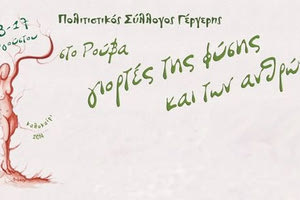 Πολιτιστικός Σύλλογος Γέργερης
στο Ρούβα
γιορτές της φύσης
και των ανθρώ
καλοκαίρι